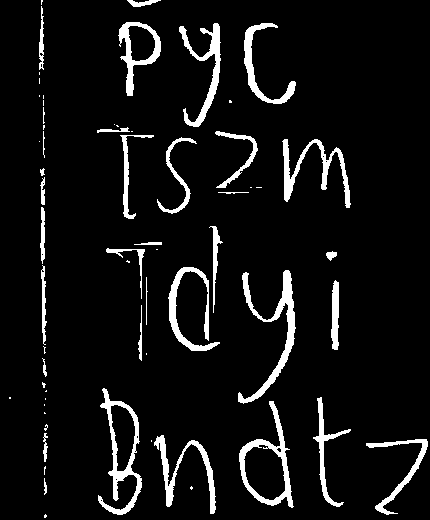 pyc
Tszm
Tdyi
Bndtz